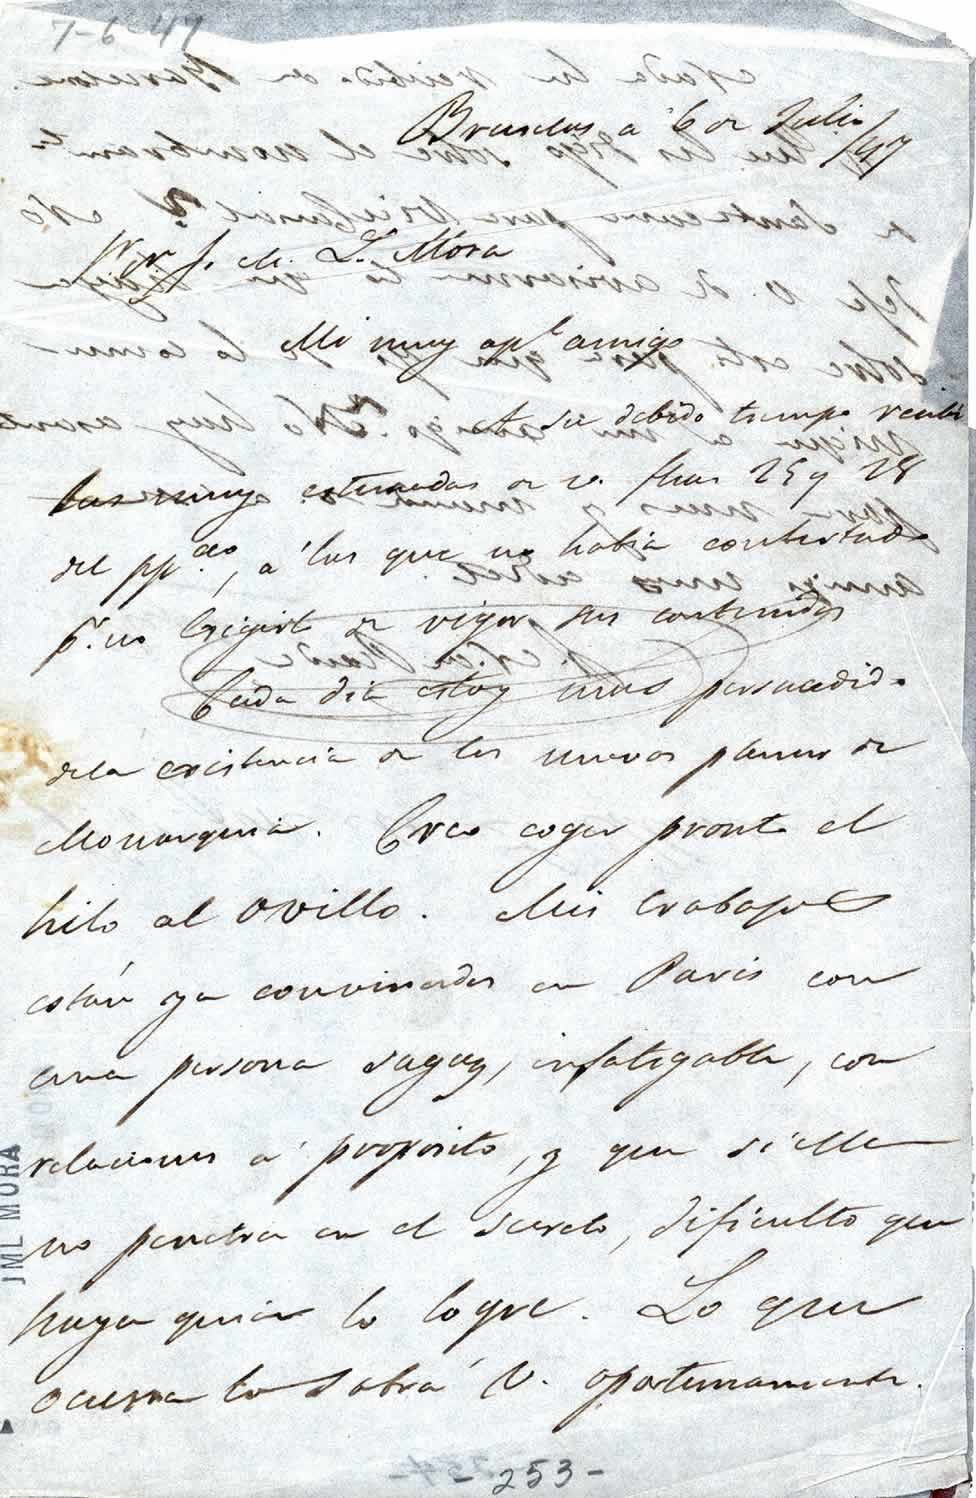 7-6-47
Bruselas a 6 de Julio
/47
Sor. Dr. J. M. L. Mora
Mi muy apl. amigo
A su debido tiempo recibi
las muy estimadas de v. fhas 25 y 28
del pp.do, á las que no habia contestado
pr. no exigirlo de rigor sus contenidos
Cada dia estoy mas persuadido
dela existencia de los nuevos planes de
Monarquia. Creo coger pronto el
hilo al ovillo. Mis trabajos
están ya convinados en Paris con
una persona sagaz, infatigable, con
relaciones á proposito, y que si ella
no penetra en el secreto, dificulto que
haya quien lo logre. Lo que
ocurra lo sabrá V. oportunamente.
JML MORA
- 253 -